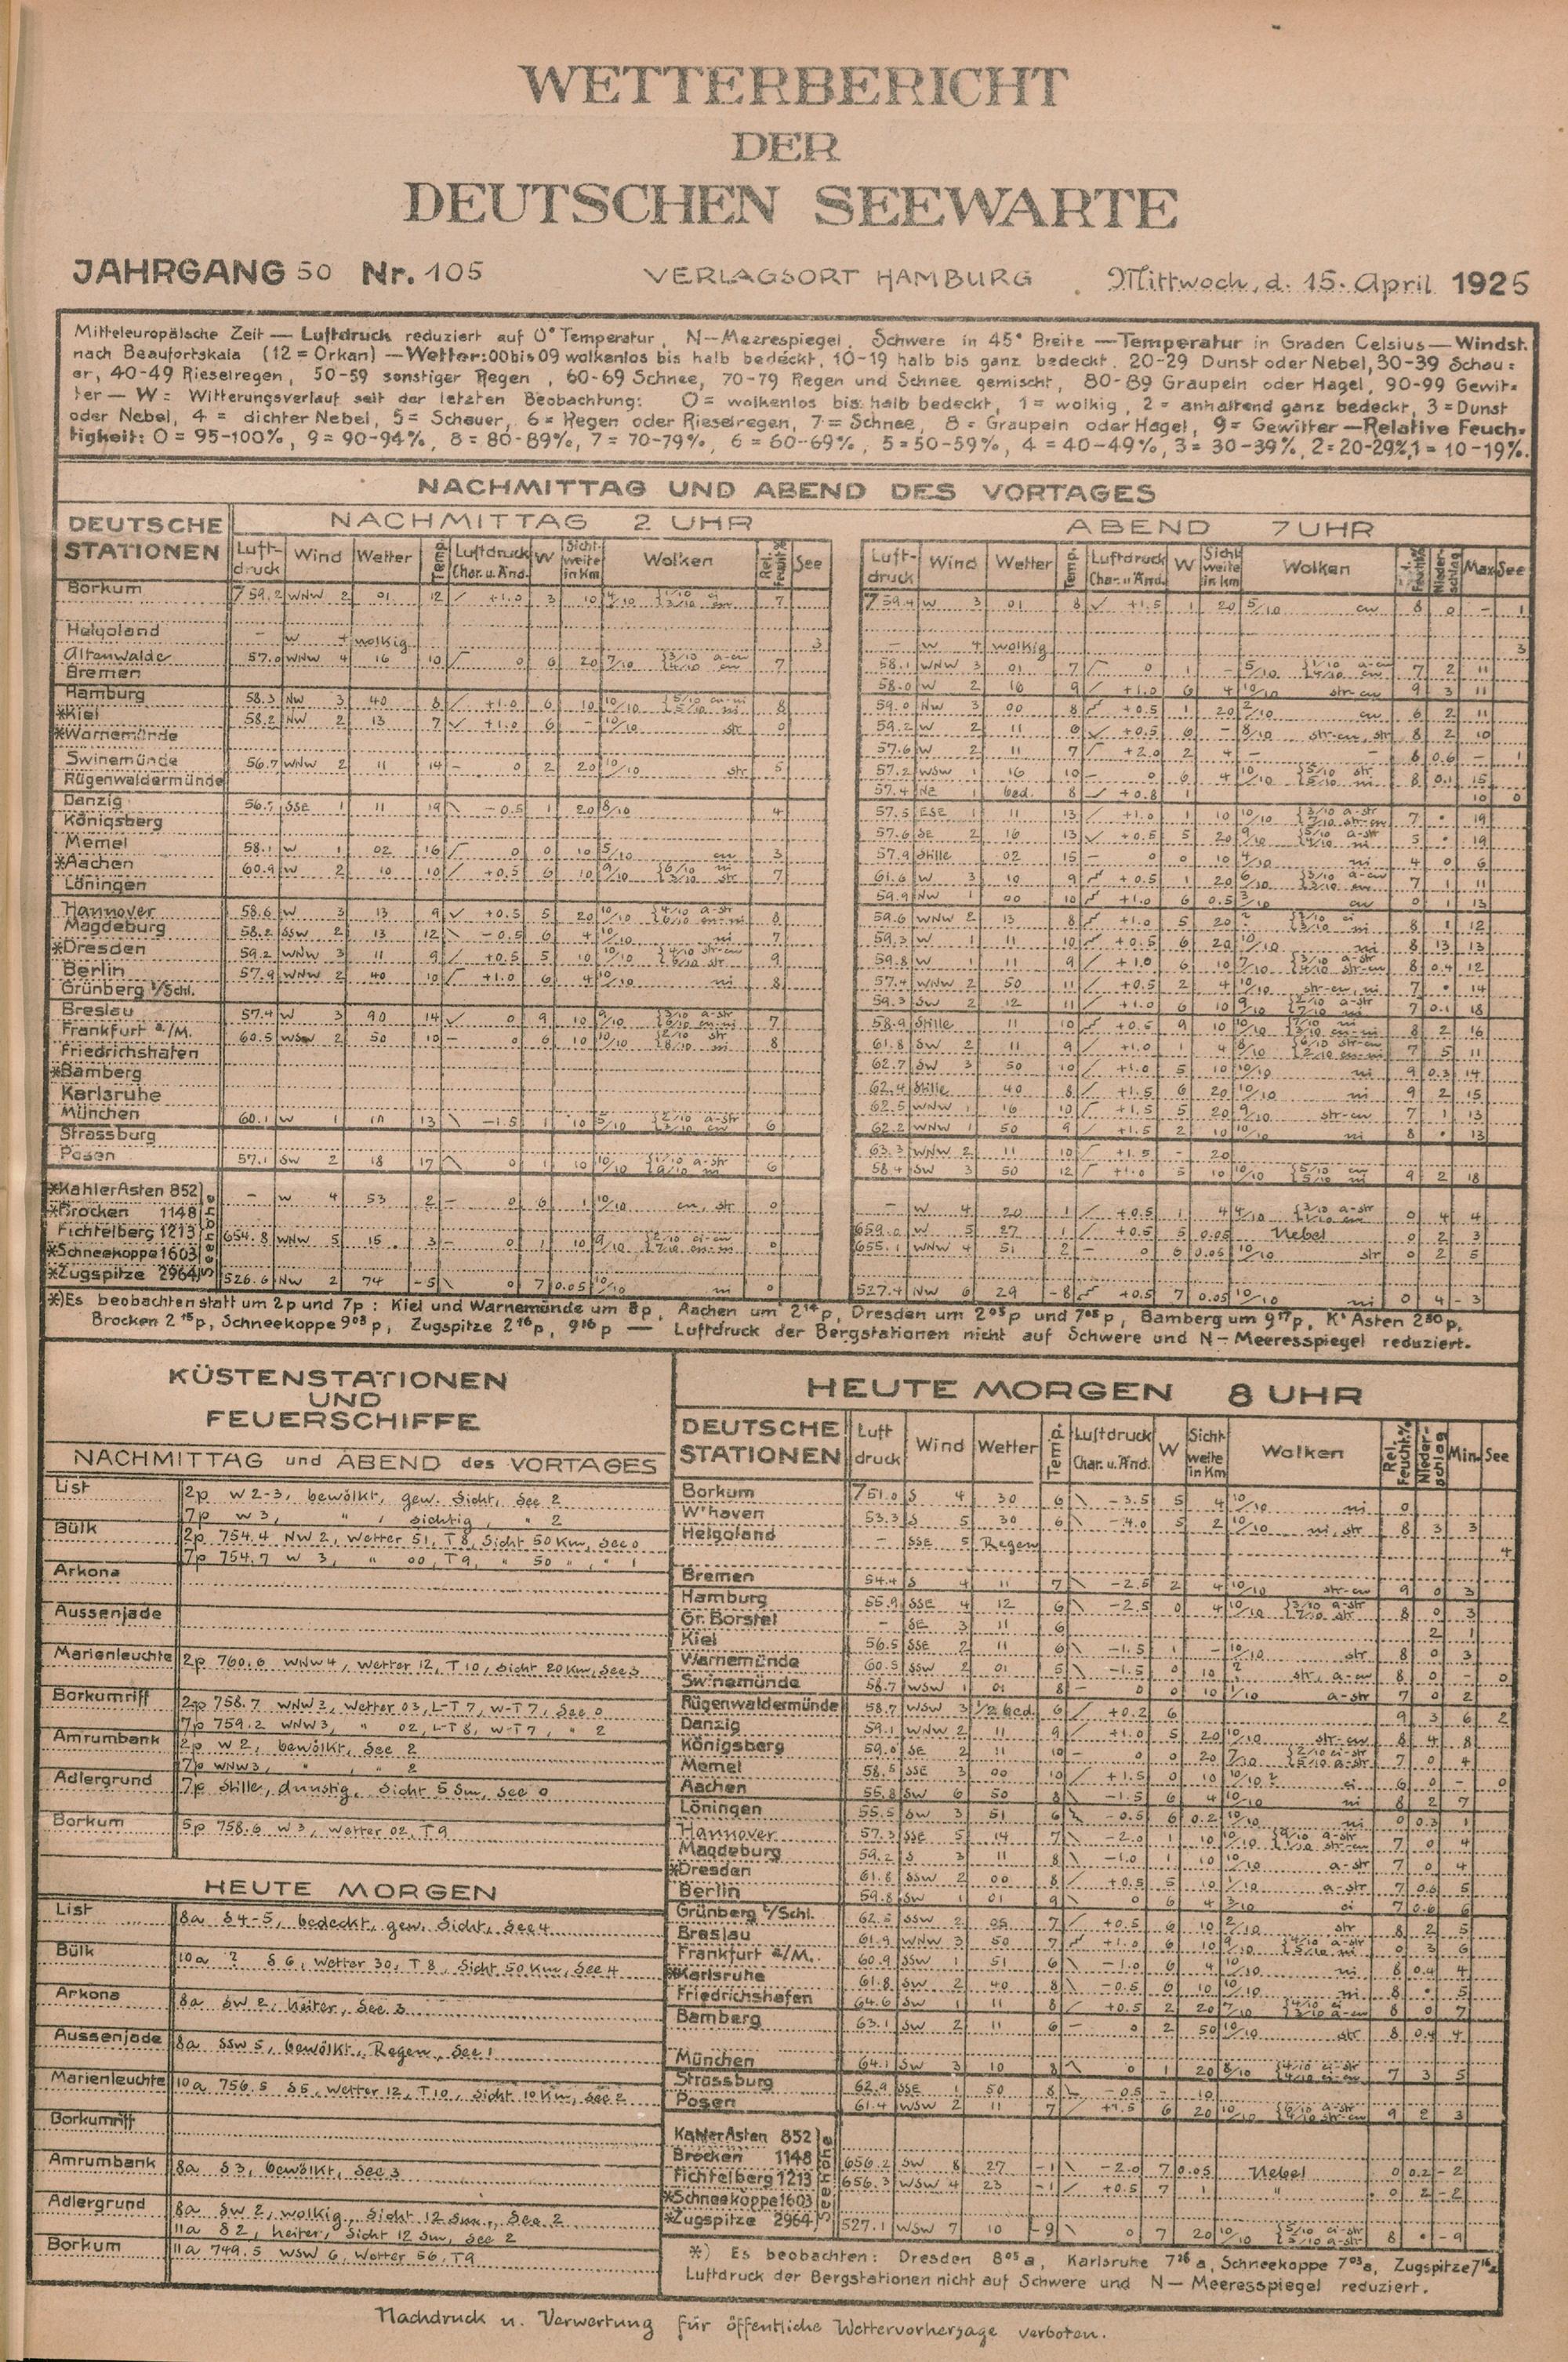 WETTERBERICHT
DER
DEUTSCHEN SEEWARTE
JAHRGANG 50 Nr. 105 VERLAGSORT HAMBURG Mittwoch, d. 15. April 1925
Mitteleuropäische Zeit — Luftdruck reduziert auf 0° Temperatur, N—Meerespiegel, Schwere in 45° Breite — Temperatur in Graden Celsius — Windst.
nach Beaufortskala (12 = Orkan) — Wetter: 00 bis 09 wolkenlos bis halb bedeckt, 10-19 halb bis ganz bedeckt. 20-29 Dunst oder Nebel, 30-39 Schau=
er, 40-49 Rieselregen, 50-59 sonstiger Regen, 60-69 Schnee, 70-79 Regen und Schnee gemischt, 80-89 Graupeln oder Hagel, 90-99 Gewit=
ter — W = Witterungsverlauf seit der letzten Beobachtung: 0 = wolkenlos bis halb bedeckt, 1 = wolkig, 2 = anhaltend ganz bedeckt, 3 = Dunst
oder Nebel, 4 = dichter Nebel, 5 = Schauer, 6 = Regen oder Rieselregen, 7 = Schnee, 8 = Graupeln oder Hagel, 9 = Gewitter — Relative Feuch=
tigkeit: 0 = 95-100%, 9 = 90-94%, 8 = 80-89%, 7 = 70-79%, 6 = 60-69%, 5 = 50-59%, 4 = 40-49%, 3 = 30-39%, 2 = 20-29%, 1 = 10-19%.
NACHMITTAG UND ABEND DES VORTAGES
DEUTSCHE STATIONEN
NACHMITTAG 2 UHR
Luft-druck Wind Wetter Temp. Luftdruck Char. u. Änd. W Sicht-weite in Km Wolken Rel. Feucht % See
ABEND 7 UHR
Luft-druck Wind Wetter Temp. Luftdruck Char. u. Änd. W Sicht-weite in Km Wolken Nieder-schlag Max See
Borkum 759.2 WNW 2 01 12 +1.0 3 10 7 759.4 W 3 01 8 +1.5 1 20 5/10 cu 8 0 – 1
Helgoland – W 4 wolkig 3 – W 4 wolkig 3
Altenwalde 57.0 WNW 4 16 10 0 6 20 7/10 7 58.1 WNW 3 01 7 0 1 – 5/10 7 2 11
Bremen 58.0 W 2 16 9 +1.0 6 4 10/10 str-cu 9 3 11
Hamburg 58.3 NW 3 40 8 +1.0 6 10 10/10 8 59.0 NW 3 00 8 +0.5 1 20 2/10 cu 6 2 11
*Kiel 58.2 NW 2 13 7 +1.0 6 – 10/10 str 0 59.2 W 2 11 6 +0.5 6 – 8/10 str-cu, str 8 2 10
*Warnemünde 57.6 W 2 11 7 +2.0 2 4 – – 8 0.6 – 1
Swinemünde 56.7 WNW 2 11 14 – 0 2 20 10/10 str 5 57.2 WSW 1 16 10 – 0 6 4 10/10 5/10 str 5/10 ni 8 0.1 15
Rügenwaldermünde 57.4 NE 1 bed. 8 +0.8 1 10 0
Danzig 56.7 SSE 1 11 19 – 0.5 1 20 8/10 4 57.5 ESE 1 11 13 +1.0 1 10 10/10 7 • 19
Königsberg 57.6 SE 2 16 13 +0.5 5 20 9/10 5 • 19
Memel 58.1 W 1 02 16 0 0 10 5/10 cu 3 57.9 Stille 02 15 – 0 0 10 4/10 ni 4 0 6
*Aachen 60.9 W 2 10 10 +0.5 6 10 9/10 6/10 ni 3/10 str 7 61.6 W 3 10 9 +0.5 1 20 6/10 7 1 11
Löningen 59.9 NW 1 00 10 +1.0 6 0.5 3/10 cu 0 1 13
Hannover 58.6 W 3 13 9 +0.5 5 20 10/10 8 59.6 WNW 2 13 8 +1.0 5 20 8 1 12
Magdeburg 58.2 SSW 2 13 12 – 0.5 6 4 10/10 ni 7 59.3 W 1 11 10 +0.5 6 20 10/10 ni 8 13 13
*Dresden 59.2 WNW 3 11 9 +0.5 5 10 10/10 9 59.8 W 1 11 9 +1.0 6 10 7/10 8 0.4 12
Berlin 57.9 WNW 2 40 10 +1.0 6 4 10/10 ni 8 57.4 WNW 2 50 11 +0.5 2 4 10/10 str-cu, ni 7 • 14
Grünberg i/Schl. 59.3 SW 2 12 11 +1.0 6 10 9/10 7 0.1 18
Breslau 57.4 W 3 90 14 0 9 10 9/10 7 58.9 Stille 11 10 +0.5 9 10 10/10 8 2 16
Frankfurt a/M. 60.5 WSW 2 50 10 – 0 6 10 10/10 2/10 str 8/10 ni 8 61.8 SW 2 11 9 +1.0 1 4 8/10 7 5 11
Friedrichshafen 62.7 SW 3 50 10 +1.0 5 10 10/10 ni 9 0.3 14
*Bamberg 62.4 Stille 40 8 +1.5 6 20 10/10 ni 9 2 15
Karlsruhe 62.5 WNW 1 16 10 +1.5 5 20 9/10 str-cu 7 1 13
München 60.1 W 1 13 – 1.5 1 10 5/10 6 62.2 WNW 1 50 9 +1.5 2 10 10/10 ni 8 • 13
Strassburg 63.3 WNW 2 11 10 +1.5 – 20
Posen 57.1 SW 2 18 17 0 1 10 10/10 1/10 a-str 9/10 ni 6 58.4 SW 3 50 12 +1.0 5 10 10/10 5/10 cu 5/10 ni 9 2 18
Seehöhe
*Kahler Asten 852 – W 4 53 2 – 0 6 1 10/10 cu, str 0 – W 4 20 1 +0.5 1 4 4/10 0 4 4
*Brocken 1148 659.0 W 5 27 1 +0.5 5 0.05 Nebel 0 2 3
Fichtelberg 1213 654.8 WNW 5 15 3 – 0 1 10 9/10 0 655.1 WNW 4 51 2 – 0 6 0.05 10/10 str 0 2 5
*Schneekoppe 1603
*Zugspitze 2964 526.6 NW 2 74 –5 0 7 0.05 10/10 ni 0 527.4 NW 6 29 –8 +0.5 7 0.05 10/10 ni 0 4 –3
*) Es beobachten statt um 2p und 7p: Kiel und Warnemünde um 8p, Aachen um 2¹⁴p, Dresden um 2⁰⁵p und 7⁰⁵p, Bamberg um 9¹⁷p, K' Asten 2³⁰p,
Brocken 2¹⁵p, Schneekoppe 9⁰³p, Zugspitze 2¹⁶p, 9¹⁶p — Luftdruck der Bergstationen nicht auf Schwere und N—Meeresspiegel reduziert.
KÜSTENSTATIONEN
UND
FEUERSCHIFFE
NACHMITTAG und ABEND des VORTAGES
List 2p W 2-3, bewölkt, gew. Sicht, See 2
7p W 3, " , sichtig, " 2
Bülk 2p 754.4 NW 2, Wetter 51, T 8, Sicht 50 Km, See 0
7p 754.7 W 3, " 00, T 9, " 50 " , " 1
Arkona
Aussenjade
Marienleuchte 2p 760.6 WNW 4, Wetter 12, T 10, Sicht 20 Km, See 3
Borkumriff 2p 758.7 WNW 3, Wetter 03, L-T 7, W-T 7, See 0
7p 759.2 WNW 3, " 02, L-T 8, W-T 7, " 2
Amrumbank 2p W 2, bewölkt, See 2
7p WNW 3, " , " 2
Adlergrund 7p Stille, dunstig, Sicht 5 Sm, See 0
Borkum 5p 758.6 W 3, Wetter 02, T 9
HEUTE MORGEN
List 8a S 4-5, bedeckt, gew. Sicht, See 4
Bülk 10a ? S 6, Wetter 30, T 8, Sicht 50 Km, See 4
Arkona 8a SW 2, heiter, See 3
Aussenjade 8a SSW 5, bewölkt, Regen, See 1
Marienleuchte 10a 756.5 S 5, Wetter 12, T 10, Sicht 10 Km, See 2
Borkumriff
Amrumbank 8a S 3, bewölkt, See 3
Adlergrund 8a SW 2, wolkig, Sicht 12 Sm, See 2
11a S 2, heiter, Sicht 12 Sm, See 2
Borkum 11a 749.5 WSW 6, Wetter 56, T 9
HEUTE MORGEN 8 UHR
DEUTSCHE STATIONEN Luft druck Wind Wetter Temp. Luftdruck Char. u. Änd. W Sicht-weite in Km Wolken Rel. Feucht. % Nieder-schlag Min. See
Borkum 751.0 S 4 30 6 – 3.5 5 4 10/10 ni 0
W'haven 53.3 S 5 30 6 – 4.0 5 2 10/10 ni, str 8 3 3
Helgoland – SSE 5 Regen 4
Bremen 54.4 S 4 11 7 – 2.5 2 4 10/10 str-cu 9 0 3
Hamburg 55.9 SSE 4 12 6 – 2.5 0 4 10/10 3/10 a-str 7/10 str 8 0 3
Gr. Borstel – SE 3 11 6 2 1
Kiel 56.5 SSE 2 11 6 – 1.5 1 – 10/10 str 8 0 3
Warnemünde 60.5 SSW 2 01 5 – 1.5 0 10 str, a-cu 8 0 – 0
Swinemünde 58.7 WSW 1 01 8 – 0 0 10 1/10 a-str 7 0 2
Rügenwaldermünde 58.7 WSW 3 1/2 bed. 6 +0.2 6 9 3 6 2
Danzig 59.1 WNW 2 11 9 +1.0 5 20 10/10 str-cu 8 4 8
Königsberg 59.0 SE 2 11 10 – 0 0 20 7/10 2/10 ci-str 5/10 a-str 7 0 4
Memel 58.5 SSE 3 00 10 +1.5 0 10 10/10 ? ci 6 0 – 0
Aachen 55.8 SW 6 50 8 – 1.5 6 4 10/10 ni 8 2 7
Löningen 55.5 SW 3 51 6 – 0.5 6 0.2 10/10 ni 0 0.3 1
Hannover 57.3 SSE 5 14 7 – 2.0 1 10 10/10 9/10 a-str 1/10 str-cu 7 0 4
Magdeburg 59.2 S 3 11 8 – 1.0 1 10 10/10 a-str 7 0 4
*Dresden 61.8 SSW 2 00 8 +0.5 5 10 1/10 a-str 7 0.6 5
Berlin 59.8 SW 1 01 9 0 6 4 3/10 ci 7 0.6 6
Grünberg i/Schl. 62.5 SSW 2 05 7 +0.5 6 10 2/10 str 8 2 5
Breslau 61.9 WNW 3 50 7 +1.0 6 10 9/10 4/10 a-str 5/10 ni 0 3 6
Frankfurt a/M. 60.9 SSW 1 51 6 – 1.0 6 4 10/10 ni 8 0.4 4
*Karlsruhe 61.8 SW 2 40 8 – 0.5 6 10 10/10 ni 8 • 5
Friedrichshafen 64.6 SW 1 11 8 +0.5 2 20 7/10 8 0 7
Bamberg 63.1 SW 2 11 6 – 0 2 50 10/10 str 8 0.4 4
München 64.1 SW 3 10 8 0 1 20 8/10 4/10 ci-str 4/10 ci-cu 7 3 5
Strassburg 62.9 SSE 1 50 8 – 0.5 – 10
Posen 61.4 WSW 2 11 7 +1.5 6 20 10/10 6/10 a-str 4/10 str-cu 9 2 3
Seehöhe
Kahler Asten 852
Brocken 1148 656.2 SW 8 27 –1 – 2.0 7 0.05 Nebel 0 0.2 –2
Fichtelberg 1213 656.3 WSW 4 23 –1 +0.5 7 1 " 0 2 –2
*Schneekoppe 1603
*Zugspitze 2964 527.1 WSW 7 10 –9 0 7 20 10/10 5/10 ci-str 5/10 a-str 8 • –9
*) Es beobachten: Dresden 8⁰⁵a, Karlsruhe 7³⁶a, Schneekoppe 7⁰³a, Zugspitze 7¹⁶a
Luftdruck der Bergstationen nicht auf Schwere und N—Meeresspiegel reduziert.
Nachdruck u. Verwertung für öffentliche Wettervorhersage verboten.